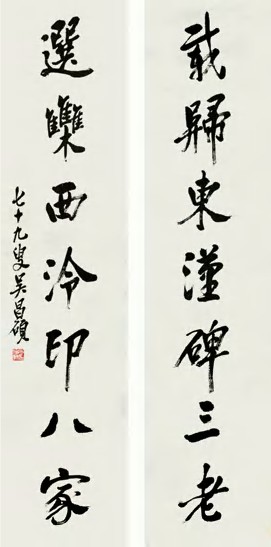 載歸東漢碑三老
選雧西泠印八家
七十九叟吳昌碩